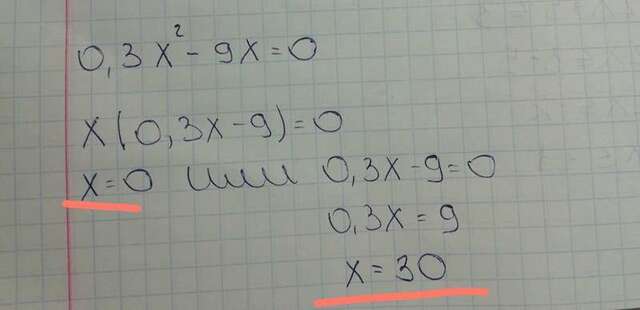 0,3x² - 9x = 0
x(0,3x - 9) = 0
x = 0 или 0,3x - 9 = 0
0,3x = 9
x = 30